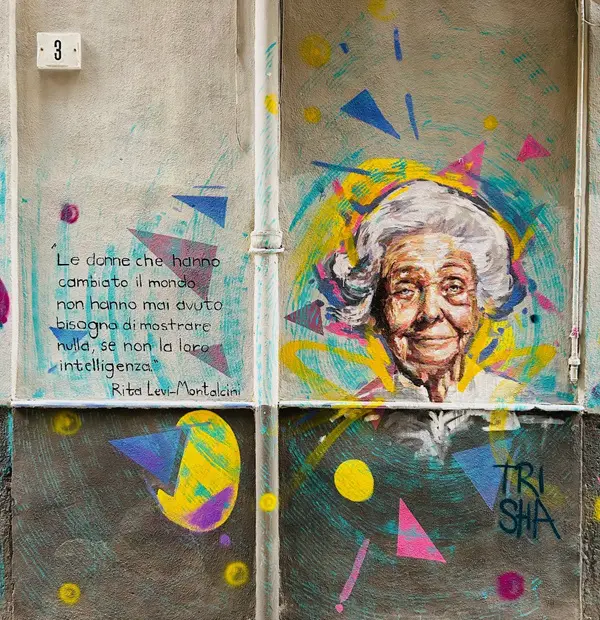 3
"Le donne che hanno
cambiato il mondo
non hanno mai avuto
bisogno di mostrare
nulla, se non la loro
intelligenza."
Rita Levi-Montalcini
TRI
SHA